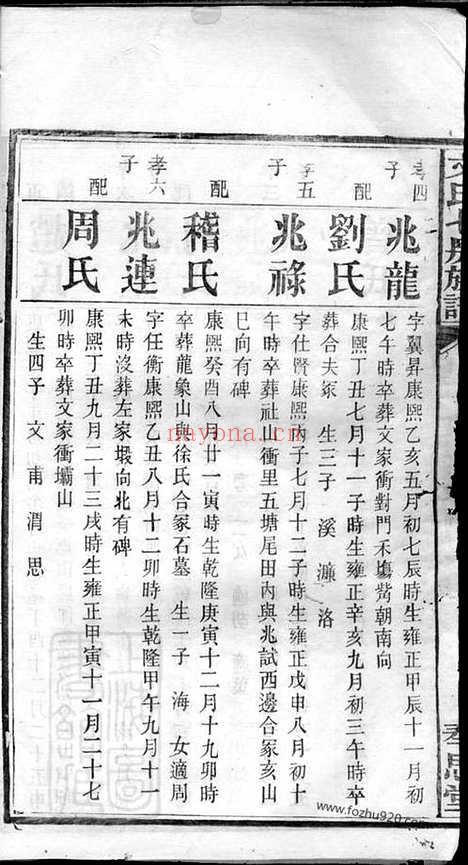 文氏七房族譜
孝四子 兆龍 字翼昇康熙乙亥五月初七辰時生雍正甲辰十一月初
七午時卒葬文家衝對門禾塲觜朝南向
配 劉氏 康熙丁丑七月十一子時生雍正辛亥九月初三午時卒
葬合夫冢 生三子 溪 濂 洛
孝五子 兆祿 字仕賢康熙丙子七月十二子時生雍正戊申八月初十
午時卒葬社山衝里五塘尾田內與兆試西邊合冢亥山
巳向有碑
配 稽氏 康熙癸酉八月廿一寅時生乾隆庚寅十二月十九卯時
卒葬龍象山與徐氏合冢石墓 生一子 海 女適周
孝六子 兆連 字任衡康熙乙丑八月十二卯時生乾隆甲午九月十一
未時沒葬左家塅向北有碑
配 周氏 康熙丁丑九月二十三戌時生雍正甲寅十一月二十七
卯時卒葬文家衝壩山
生四子 文 甫 渭 思
孝思堂
nayona.cn
www.fozhu920.com